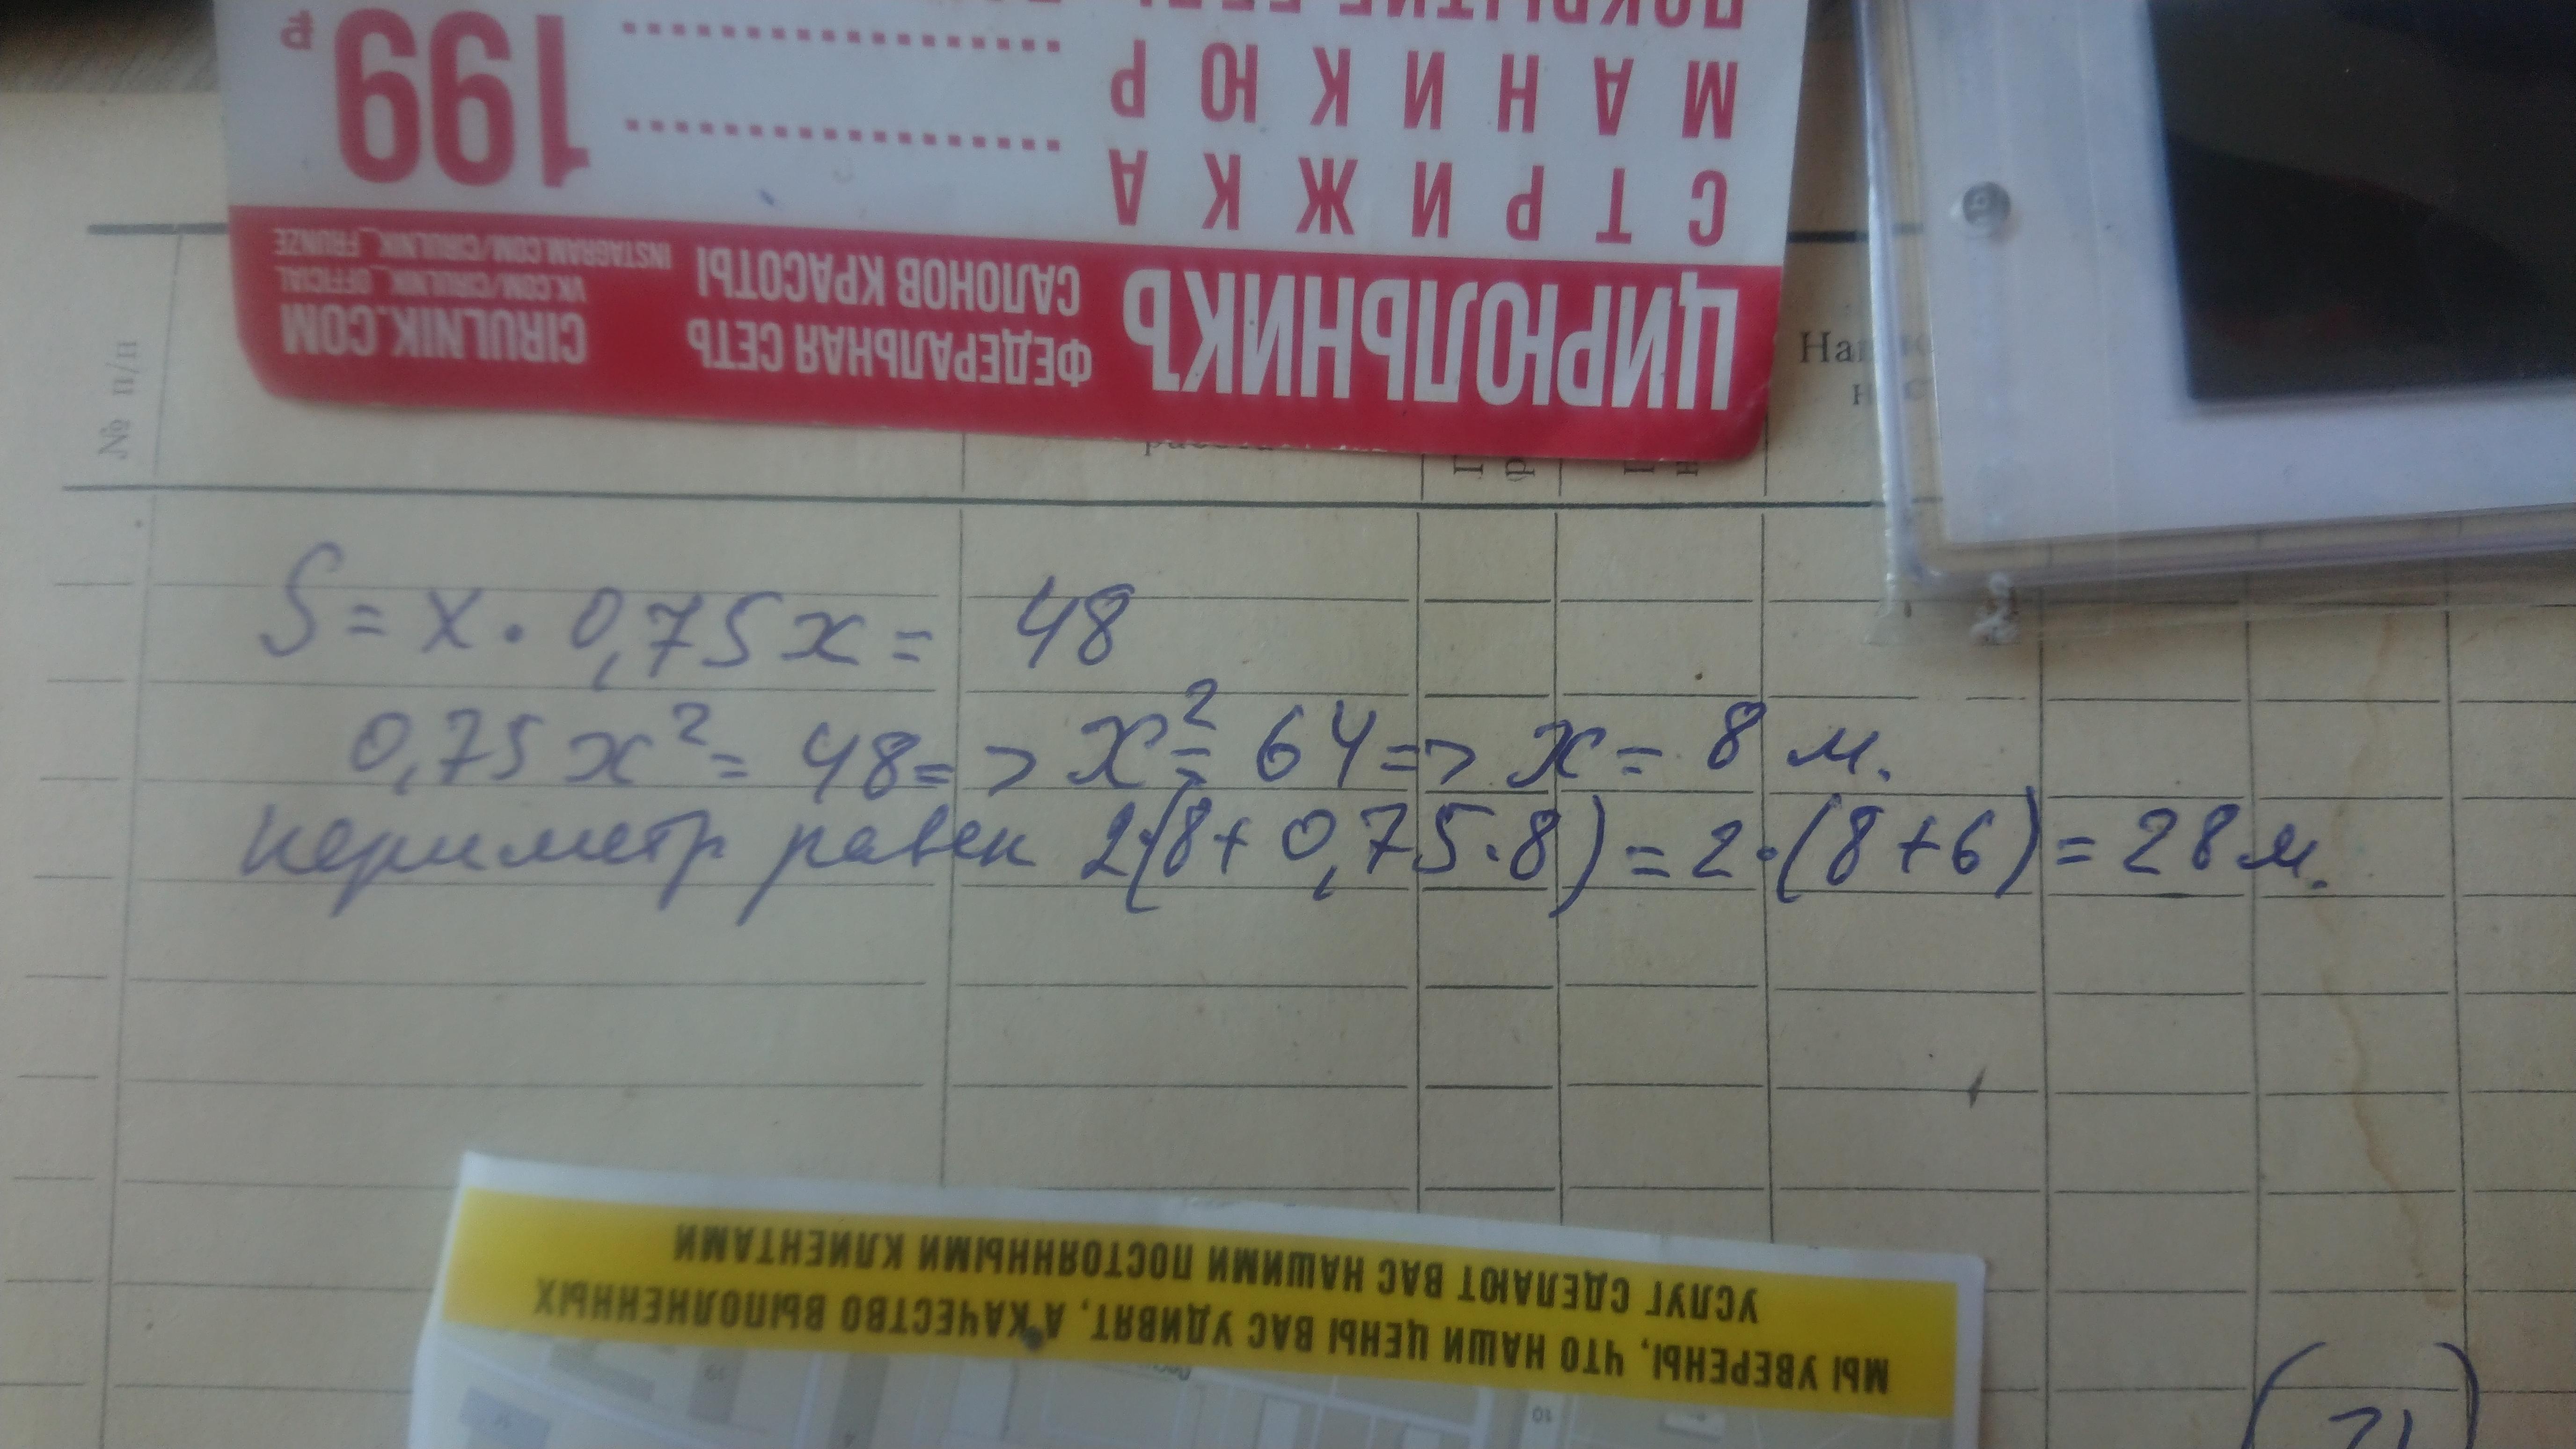 ПОКРЫТИЕ
МАНИКЮР
СТРИЖКА
199 ₽
ЦИРЮЛЬНИКЪ
ФЕДЕРАЛЬНАЯ СЕТЬ
САЛОНОВ КРАСОТЫ
INSTAGRAM.COM/CIRULNIK_FRUNZE
VK.COM/CIRULNIK_OFFICIAL
CIRULNIK.COM
№ п/п
S = x · 0,75 x = 48
0,75 x² = 48 => x² = 64 => x = 8 м.
периметр равен 2·(8 + 0,75·8) = 2·(8+6) = 28 м.
МЫ УВЕРЕНЫ, ЧТО НАШИ ЦЕНЫ ВАС УДИВЯТ, А КАЧЕСТВО ВЫПОЛНЕННЫХ
УСЛУГ СДЕЛАЮТ ВАС НАШИМИ ПОСТОЯННЫМИ КЛИЕНТАМИ